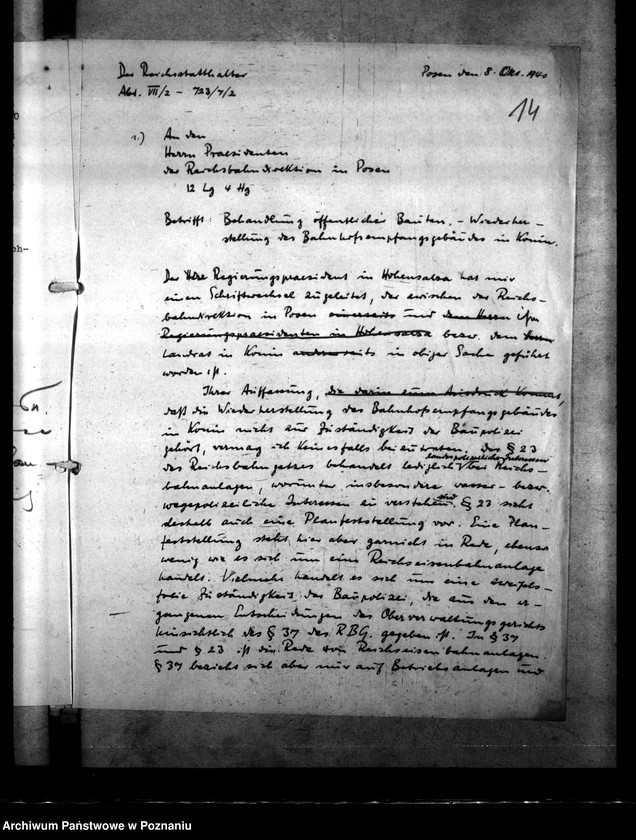 Der Reichsstatthalter
Abt. VII/2 – 723/7/2
Posen den 8. Okt. 1940
14
1.) An den
Herrn Praesidenten
der Reichsbahndirektion in Posen
12 Lg 4 Hg
Betrifft: Behandlung öffentlicher Bauten. – Wiederher-
stellung des Bahnhofsempfangsgebäudes in Konin.
Der Herr Regierungspraesident in Hohensalza hat mir
einen Schriftwechsel zugeleitet, der zwischen der Reichs-
bahndirektion in Posen einerseits und dem Herrn
Regierungspraesidenten in Hohensalza bezw. dem Herrn
Landrat in Konin andererseits in obiger Sache geführt
worden ist.
Ihrer Auffassung, die darin zum Ausdruck kommt,
daß die Wiederherstellung des Bahnhofsempfangsgebäudes
in Konin nicht zur Zuständigkeit der Baupolizei
gehört, vermag ich keinesfalls beizutreten. Der § 23
des Reichsbahngesetzes behandelt lediglich landespolizeiliche Interessen über Reichs-
bahnanlagen, worunter insbesondere wasser- bezw.
wegepolizeiliche Interessen zu verstehen sind. § 23 sieht
deshalb auch eine Planfeststellung vor. Eine Plan-
feststellung steht hier aber garnicht in Rede, ebenso
wenig wie es sich um eine Reichseisenbahnanlage
handelt. Vielmehr handelt es sich um eine zweifels-
freie Zuständigkeit der Baupolizei, die aus den er-
gangenen Entscheidungen des Oberverwaltungsgerichts
hinsichtlich des § 37 des RBG. gegeben ist. In § 37
und § 23 ist die Rede von Reichseisenbahnanlagen.
§ 37 bezieht sich aber nur auf Betriebsanlagen und
öh-
Archiwum Państwowe w Poznaniu